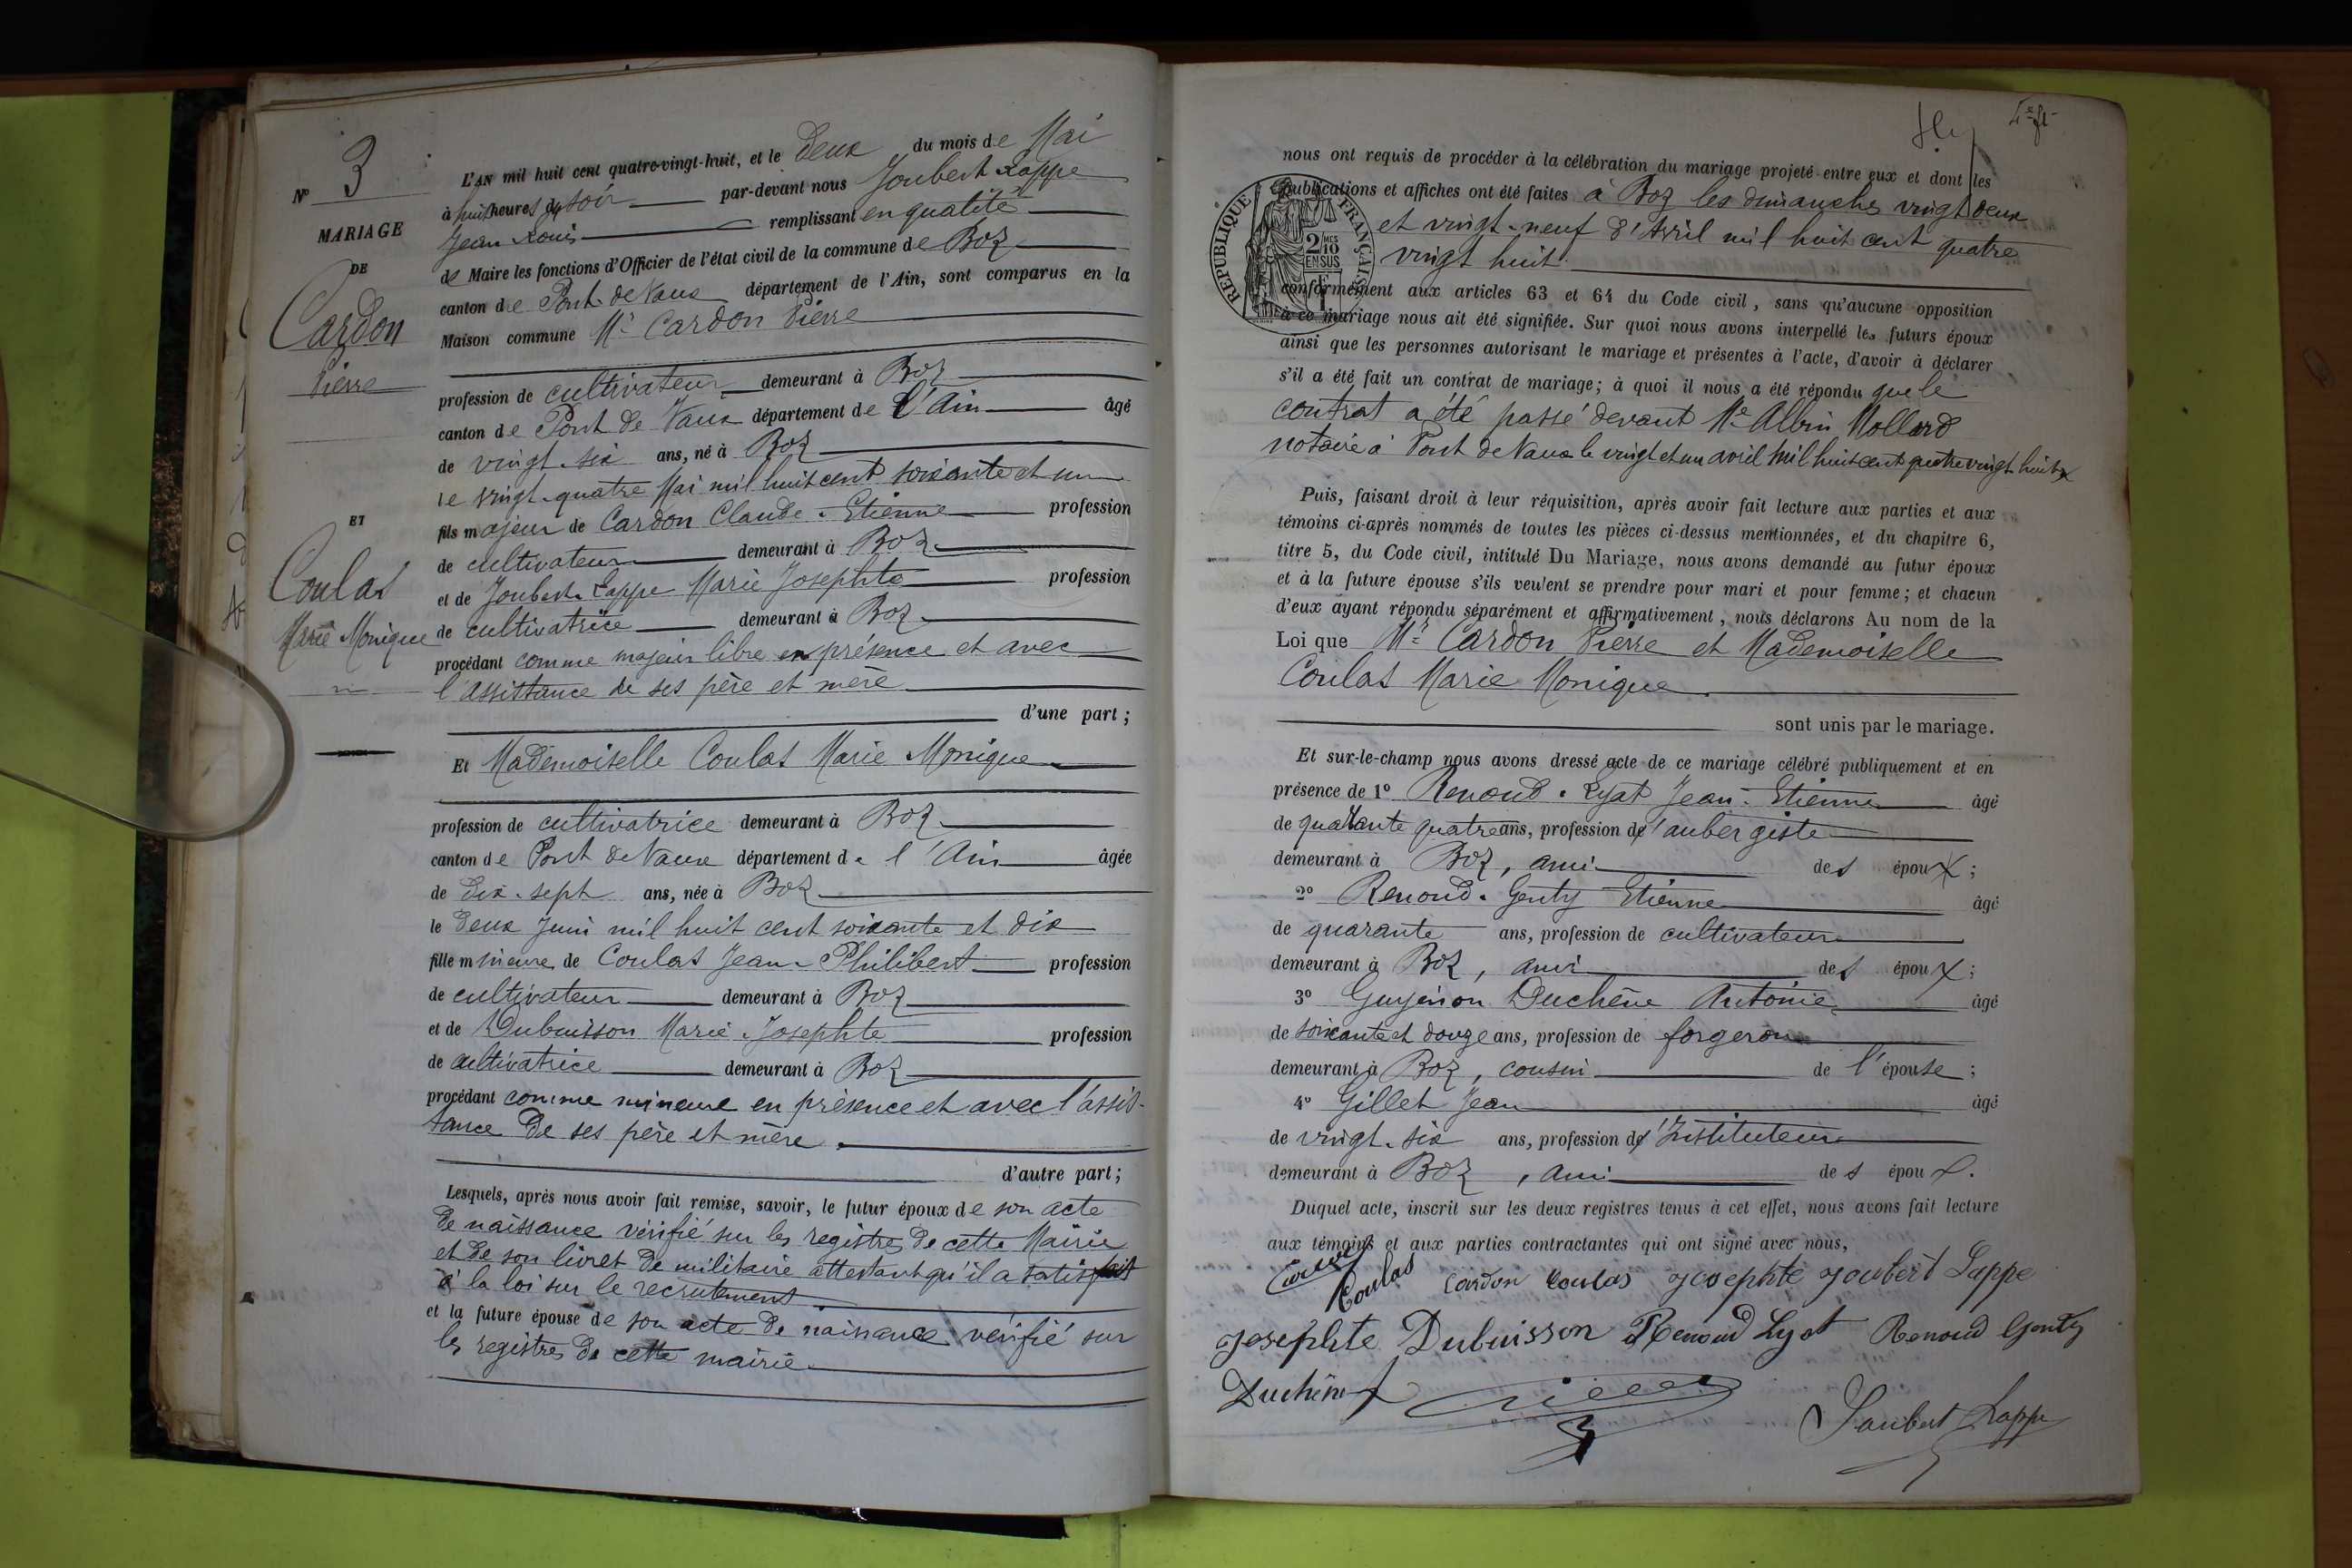 N° 3
MARIAGE
DE
Cardon
Pierre
ET
Coulas
Marie Monique
L'AN mil huit cent quatre-vingt-huit, et le deux du mois de Mai
à huit heures du soir par-devant nous Joubert Lappe
Jean Louis remplissant en qualité
de Maire les fonctions d'Officier de l'état civil de la commune de Boz
canton de Pont de Vaux département de l'Ain, sont comparus en la
Maison commune Mr Cardon Pierre
profession de cultivateur demeurant à Boz
canton de Pont de Vaux département de l'Ain âgé
de vingt-six ans, né à Boz
le vingt-quatre Mai mil huit cent soixante et un
fils majeur de Cardon Claude-Etienne profession
de cultivateur demeurant à Boz
et de Joubert-Lappe Marie Josephte profession
de cultivatrice demeurant à Boz
procédant comme majeur libre en présence et avec
l'assistance de ses père et mère
d'une part ;
Et Mademoiselle Coulas Marie Monique
profession de cultivatrice demeurant à Boz
canton de Pont de Vaux département de l'Ain âgée
de dix-sept ans, née à Boz
le deux Juin mil huit cent soixante et dix
fille mineure de Coulas Jean-Philibert profession
de cultivateur demeurant à Boz
et de Dubuisson Marie-Josephte profession
de cultivatrice demeurant à Boz
procédant comme mineure en présence et avec l'assis-
tance de ses père et mère
d'autre part ;
Lesquels, après nous avoir fait remise, savoir, le futur époux de son acte
de naissance vérifié sur les registres de cette Mairie
et de son livret de militaire attestant qu'il a satisfait
à la loi sur le recrutement
et la future épouse de son acte de naissance vérifié sur
les registres de cette mairie
nous ont requis de procéder à la célébration du mariage projeté entre eux et dont les
publications et affiches ont été faites à Boz les dimanches vingt deux
et vingt-neuf d'Avril mil huit cent quatre
vingt huit
RÉPUBLIQUE FRANÇAISE
2/10
EN SUS
conformément aux articles 63 et 64 du Code civil, sans qu'aucune opposition
à ce mariage nous ait été signifiée. Sur quoi nous avons interpellé les futurs époux
ainsi que les personnes autorisant le mariage et présentes à l'acte, d'avoir à déclarer
s'il a été fait un contrat de mariage; à quoi il nous a été répondu que le
contrat a été passé devant Me Albin Mollard
notaire à Pont de Vaux le vingt et un avril mil huit cent quatre vingt huit
Puis, faisant droit à leur réquisition, après avoir fait lecture aux parties et aux
témoins ci-après nommés de toutes les pièces ci-dessus mentionnées, et du chapitre 6,
titre 5, du Code civil, intitulé Du Mariage, nous avons demandé au futur époux
et à la future épouse s'ils veulent se prendre pour mari et pour femme; et chacun
d'eux ayant répondu séparément et affirmativement, nous déclarons Au nom de la
Loi que Mr Cardon Pierre et Mademoiselle
Coulas Marie Monique
sont unis par le mariage.
Et sur-le-champ nous avons dressé acte de ce mariage célébré publiquement et en
présence de 1° Renoud-Lyat Jean-Etienne âgé
de quarante quatre ans, profession d'aubergiste
demeurant à Boz, ami des époux ;
2° Renoud-Genty Etienne âgé
de quarante ans, profession de cultivateur
demeurant à Boz, ami des époux ;
3° Guyenon Duchêne Antoine âgé
de soixante et douze ans, profession de forgeron
demeurant à Boz, cousin de l'épouse ;
4° Gillet Jean âgé
de vingt-six ans, profession d'Instituteur
demeurant à Boz, ami des époux.
Duquel acte, inscrit sur les deux registres tenus à cet effet, nous avons fait lecture
aux témoins et aux parties contractantes qui ont signé avec nous,
Coulas Cardon Coulas Josephte Joubert Lappe
Josephte Dubuisson Renoud Lyat Renoud Genty
Duchêne
Joubert Lappe